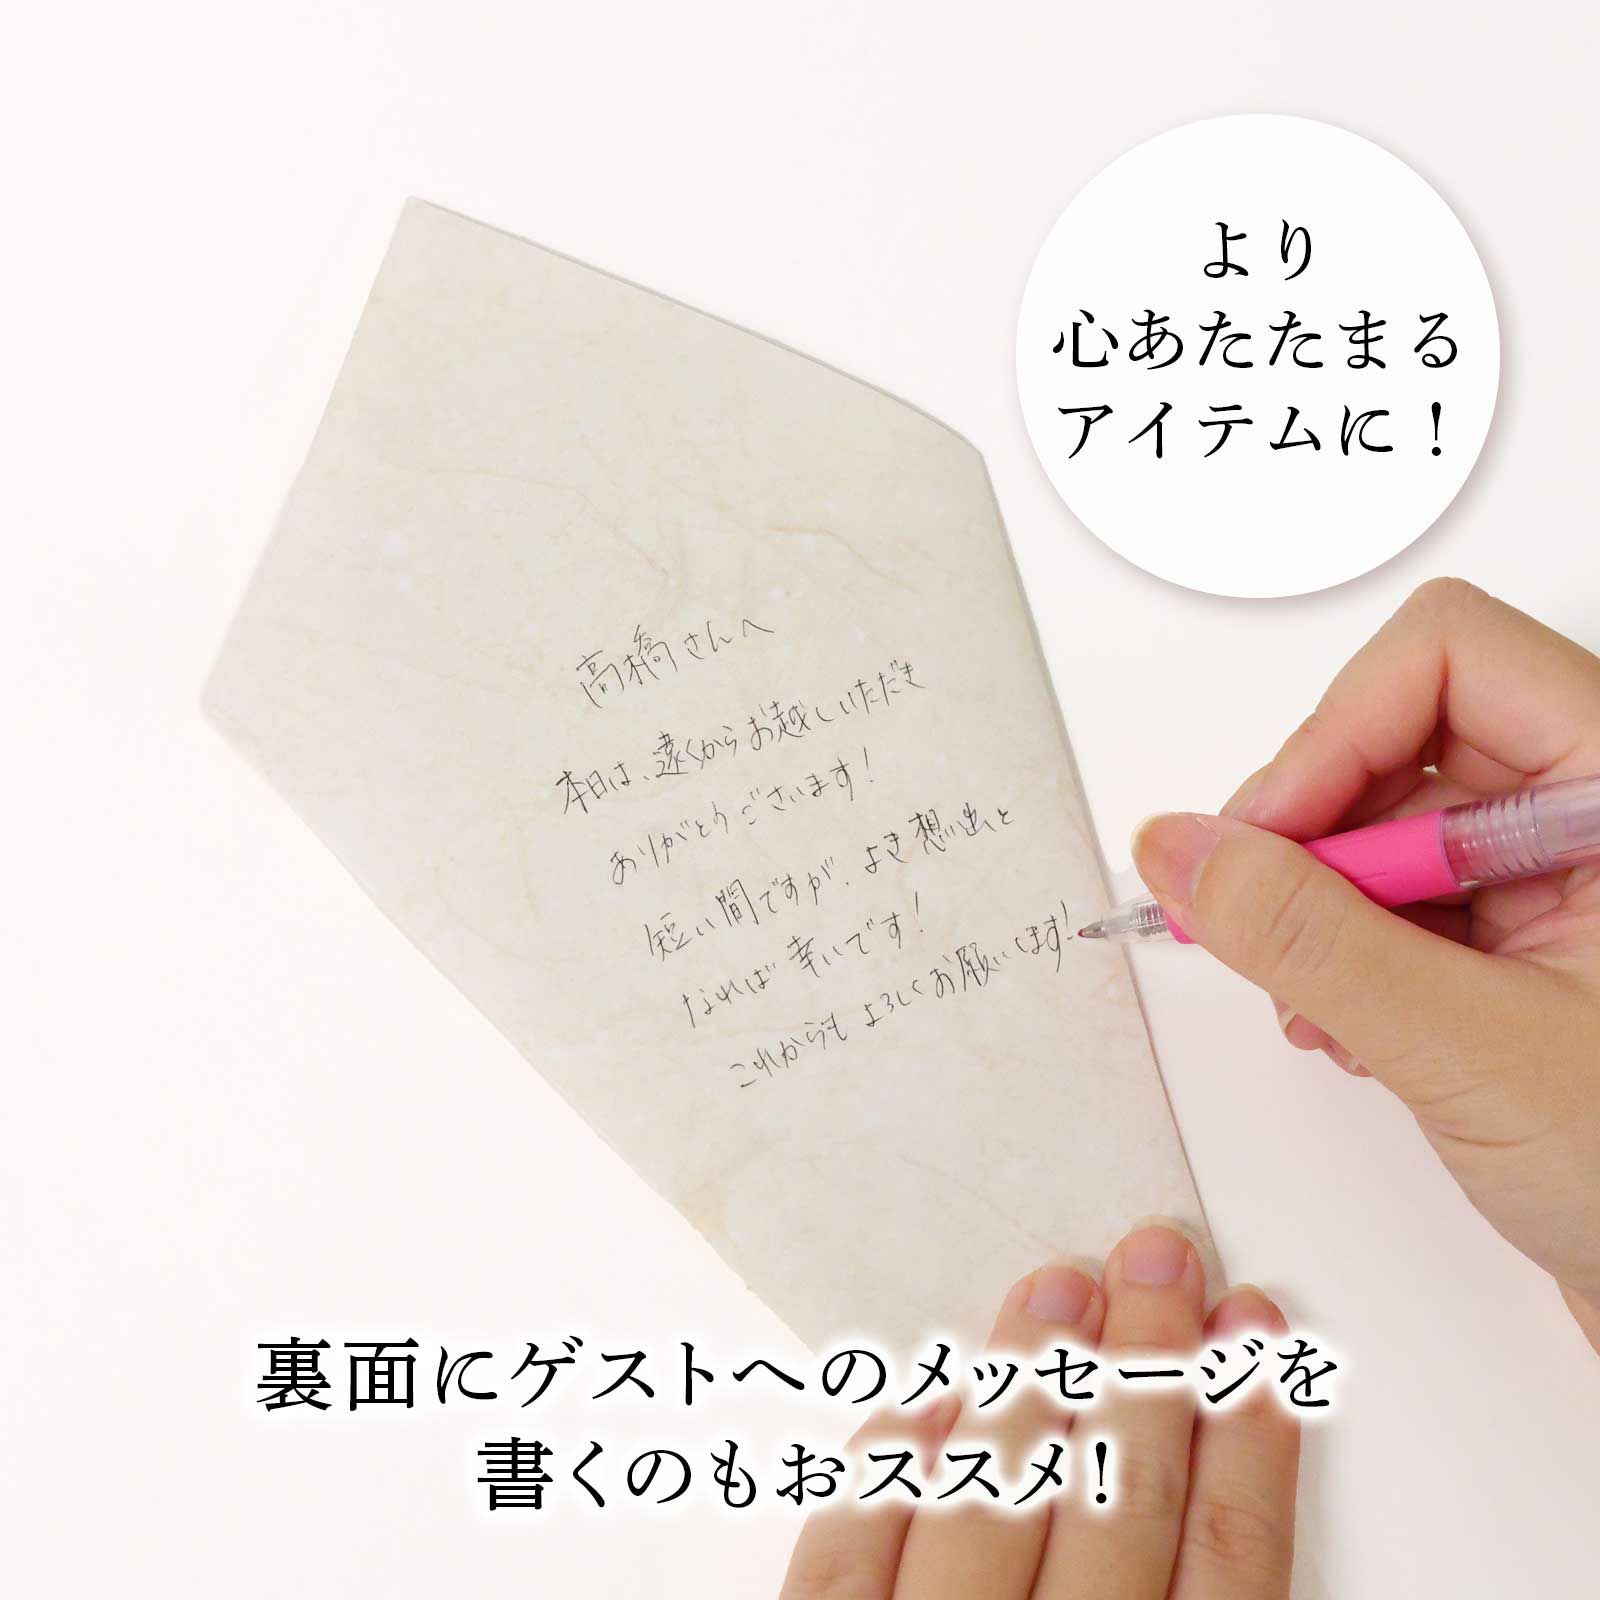 より
心あたたまる
アイテムに！
高橋さんへ
本日は、遠くからお越しいただき
ありがとうございます！
短い間ですが、よき想い出と
なれば幸いです！
これからもよろしくお願いします！
裏面にゲストへのメッセージを
書くのもおススメ！